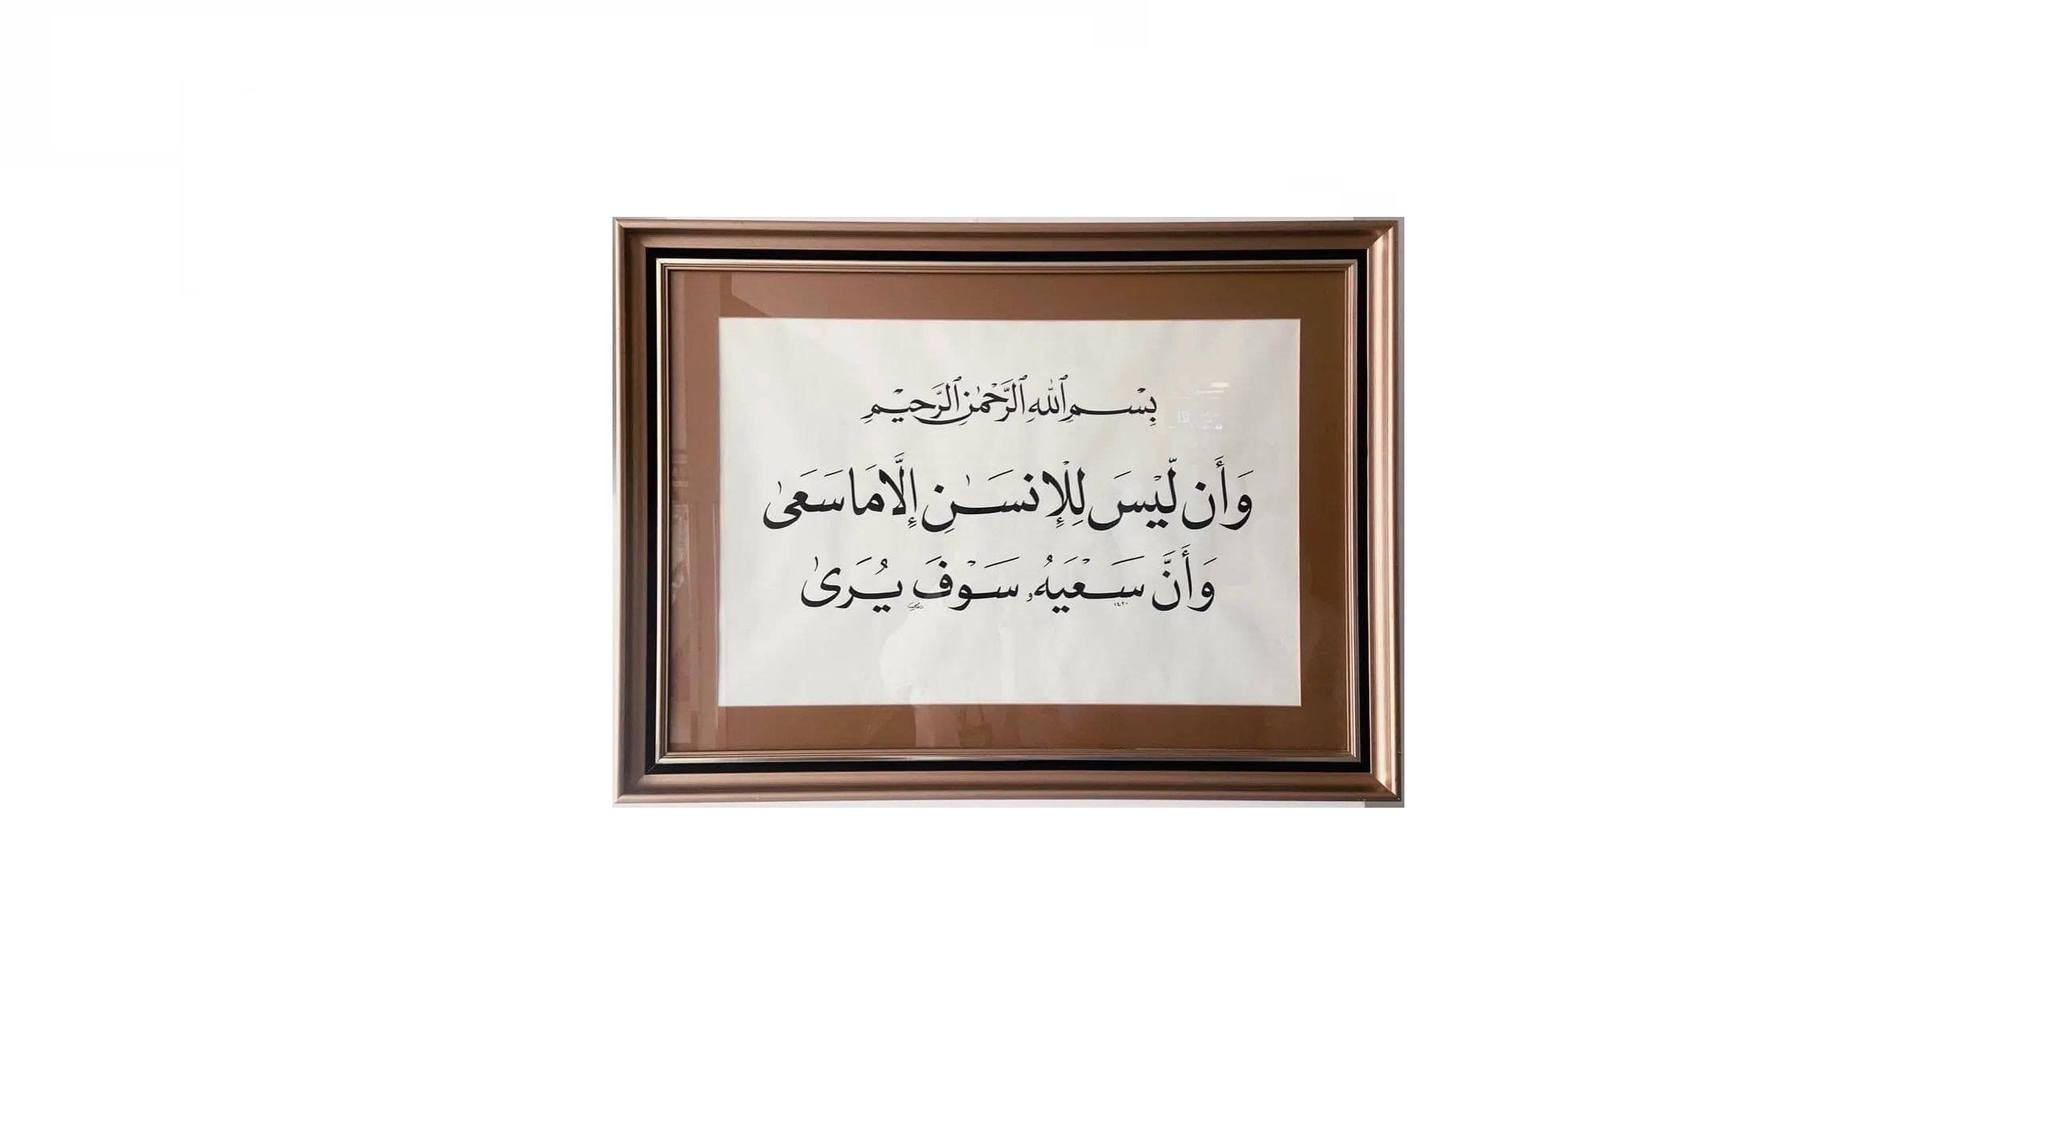 بِسْمِ ٱللَّهِ ٱلرَّحْمَٰنِ ٱلرَّحِيمِ
وَأَن لَّيْسَ لِلْإِنسَـٰنِ إِلَّا مَا سَعَىٰ
وَأَنَّ سَعْيَهُۥ سَوْفَ يُرَىٰ
١٤٢٠